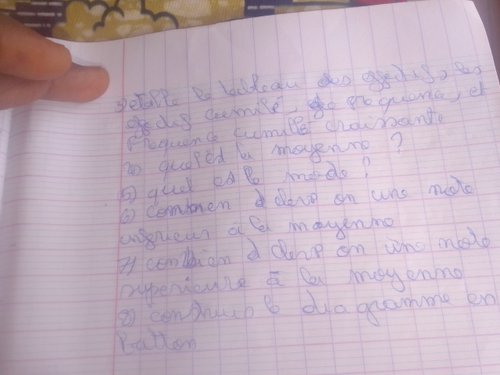 3) etable le tableau des effectifs, des
effectifs cumulé, de frequence, et
frequence cumulé croissante
4) quel est la moyenne ?
5) quel est le mode ?
6) combien d eleve on une note
inferieur à la moyenne
7) combien d eleve on une note
superieure à la moyenne
8) construis le diagramme en
batton